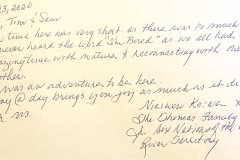 3, 2020
Tim & Sam
time here was very short as there was so much
never heard the word "I'm Bored" as we all had
time with nature & reconnecting with
other.
was an adventure to be here.
@ day brings you joy as much as it
us.
The Thomas Family
Six Nations of the
River Territory